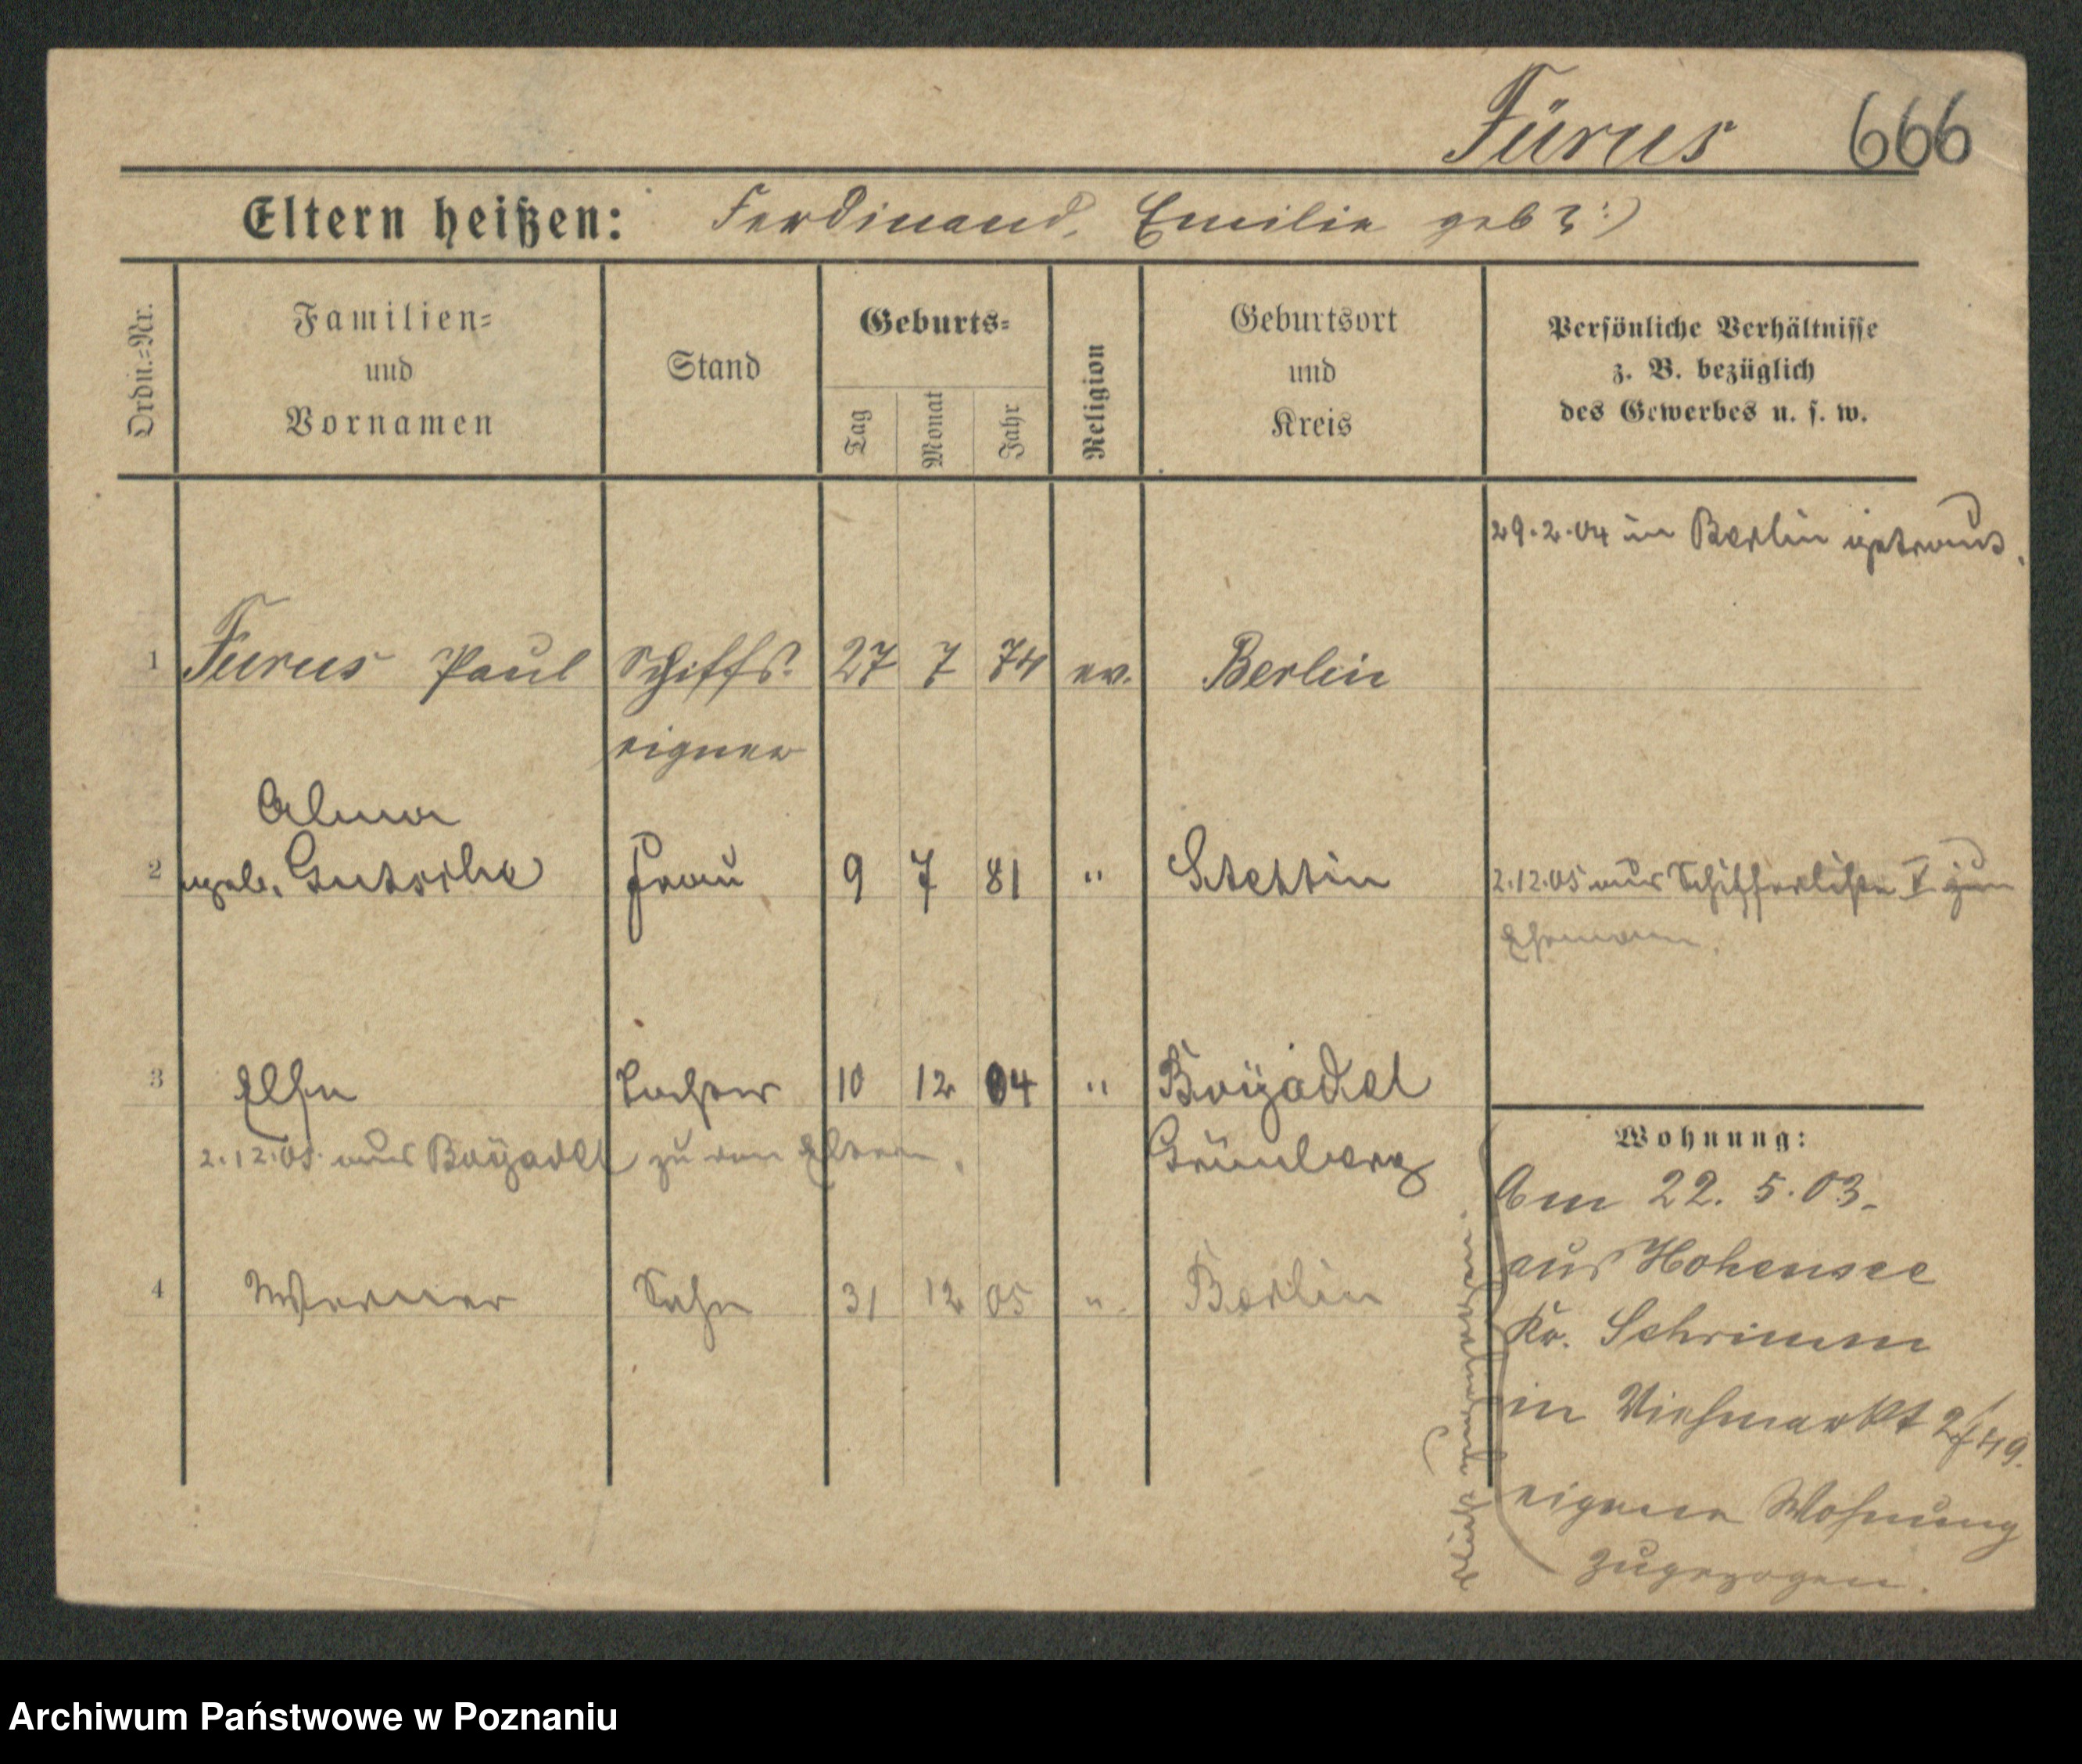 Fürus 666
Eltern heißen: Ferdinand, Emilie geb ?:)
Ordn.=Nr.
Familien=
und
Vornamen
Stand
Geburts=
Tag
Monat
Jahr
Religion
Geburtsort
und
Kreis
Persönliche Verhältnisse
z. B. bezüglich
des Gewerbes u. s. w.
29.2.04 in Berlin getraut.
1 Fürus Paul Schiffs= 27 7 74 ev. Berlin
eigner
Alma
2 geb. Gutsche Frau 9 7 81 " Stettin 2.12.05 aus Schifferliste V zum
Ehemann.
3 Else Tochter 10 12 04 " Boÿadel
2.12.05. aus Boÿadel zu den Eltern.
Grünberg
4 Werner Sohn 31 12 05 " Berlin
Wohnung:
Am 22. 5. 03.
aus Hohensee
Kr. Schrimm
in Viehmarkt
eigene Wohnung
zugezogen.